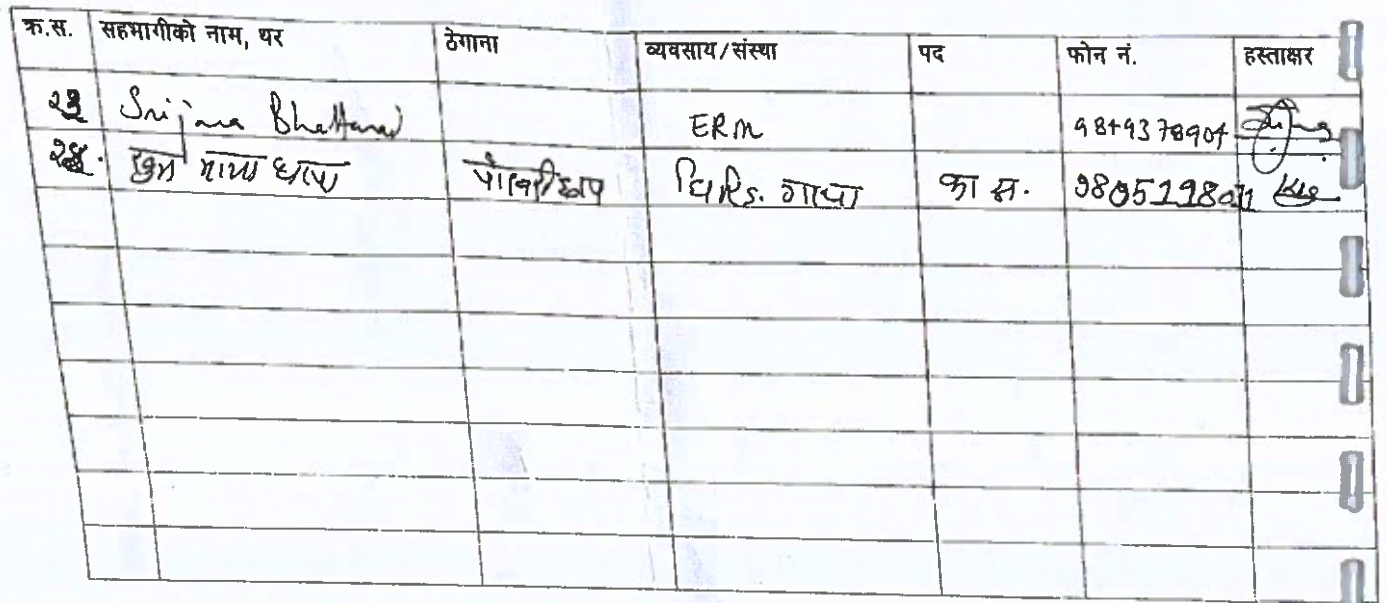 क्र.स. सहभागीको नाम, थर ठेगाना व्यवसाय/संस्था पद फोन नं. हस्ताक्षर
२३ Srijana Bhattarai ERM 9849378904
२४. माया थापा का स. 9805119801